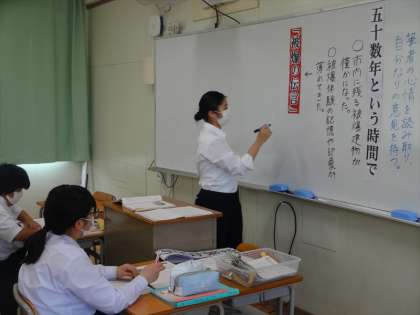 筆者の心情を読み取り、
自分なりの意見を持つ。
五十数年という時間で
○市内に残る被爆建物が
僅かになった。
○被爆体験の記憶や印象が
薄れてきた。
「被爆の伝言」